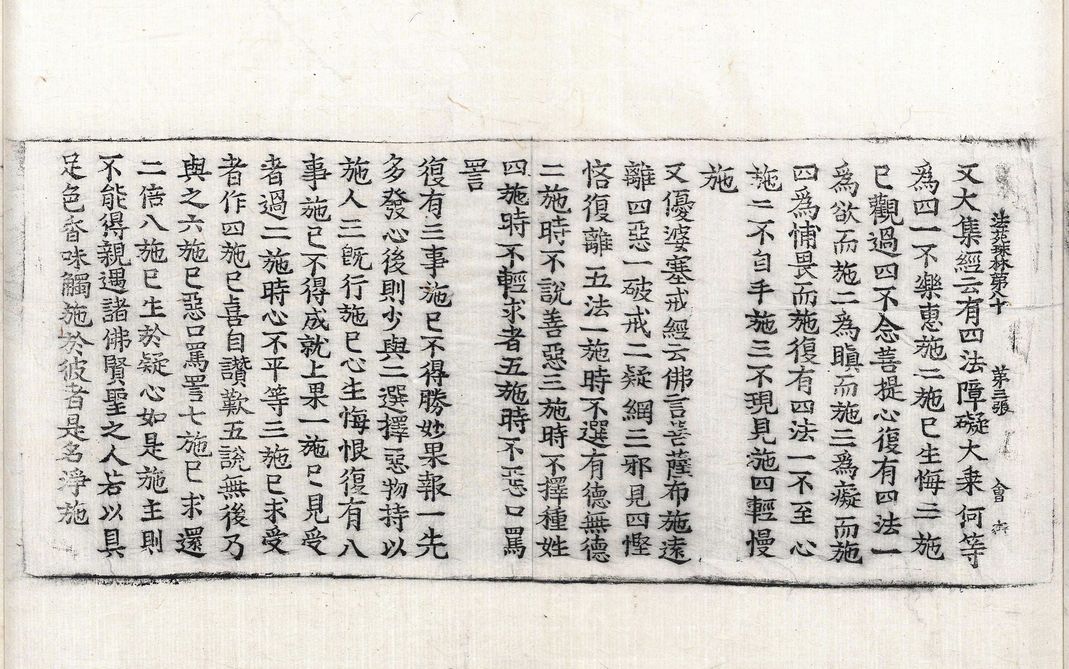 法苑珠林第八十 第三張 會
又大集經云有四法障礙大乗何等
爲四一不樂惠施二施已生悔三施
已觀過四不念菩提心復有四法一
爲欲而施二爲瞋而施三爲癡而施
四爲怖畏而施復有四法一不至心
施二不自手施三不現見施四輕慢
施
又優婆塞戒經云佛言菩薩布施遠
離四惡一破戒二疑網三邪見四慳
悋復離五法一施時不選有德無德
二施時不說善惡三施時不擇種姓
四施時不輕求者五施時不惡口罵
詈
復有三事施已不得勝妙果報一先
多發心後則少與二選擇惡物持以
施人三旣行施已心生悔恨復有八
事施已不得成就上果一施已見受
者過二施時心不平等三施已求受
者作四施已喜自讃歎五說無後乃
與之六施已惡口罵詈七施已求還
二倍八施已生於疑心如是施主則
不能得親遇諸佛賢聖之人若以具
足色香味觸施於彼者是名淨施